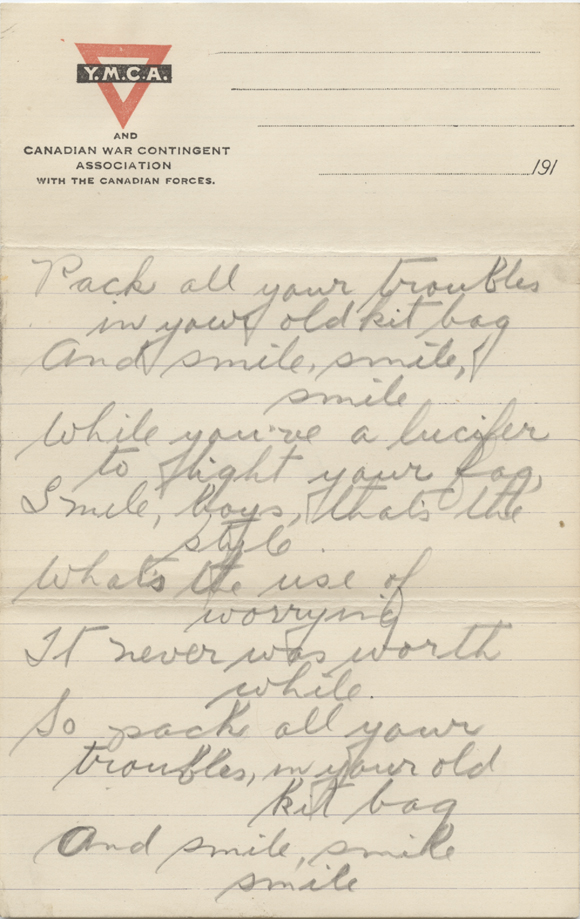 Y.M.C.A.
AND
CANADIAN WAR CONTINGENT
ASSOCIATION
WITH THE CANADIAN FORCES.
191
Pack all your troubles
in your old kit bag
And smile, smile,
smile
While you've a lucifer
to light your fag,
Smile, boys, that's the
style.
What's the use of
worrying
It never was worth
while.
So pack all your
troubles, in your old
kit bag
And smile, smile
smile